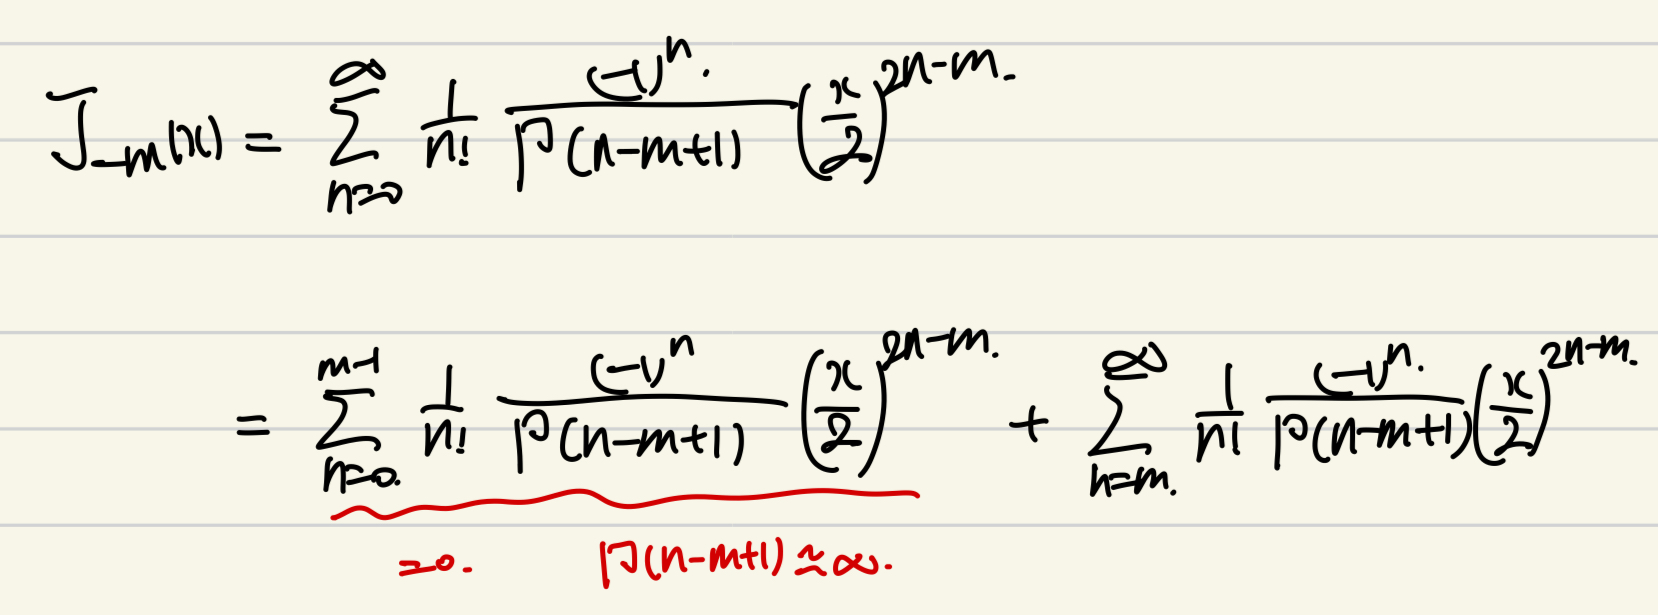 J_{-m}(x) = \sum_{n=0}^{\infty} \frac{1}{n!} \frac{(-1)^n.}{\Gamma(n-m+1)} \left(\frac{x}{2}\right)^{2n-m.}
= \sum_{n=0.}^{m-1} \frac{1}{n!} \frac{(-1)^n}{\Gamma(n-m+1)} \left(\frac{x}{2}\right)^{2n-m.} + \sum_{n=m.}^{\infty} \frac{1}{n!} \frac{(-1)^n.}{\Gamma(n-m+1)} \left(\frac{x}{2}\right)^{2n-m.}
=0. \Gamma(n-m+1) ≈ ∞.